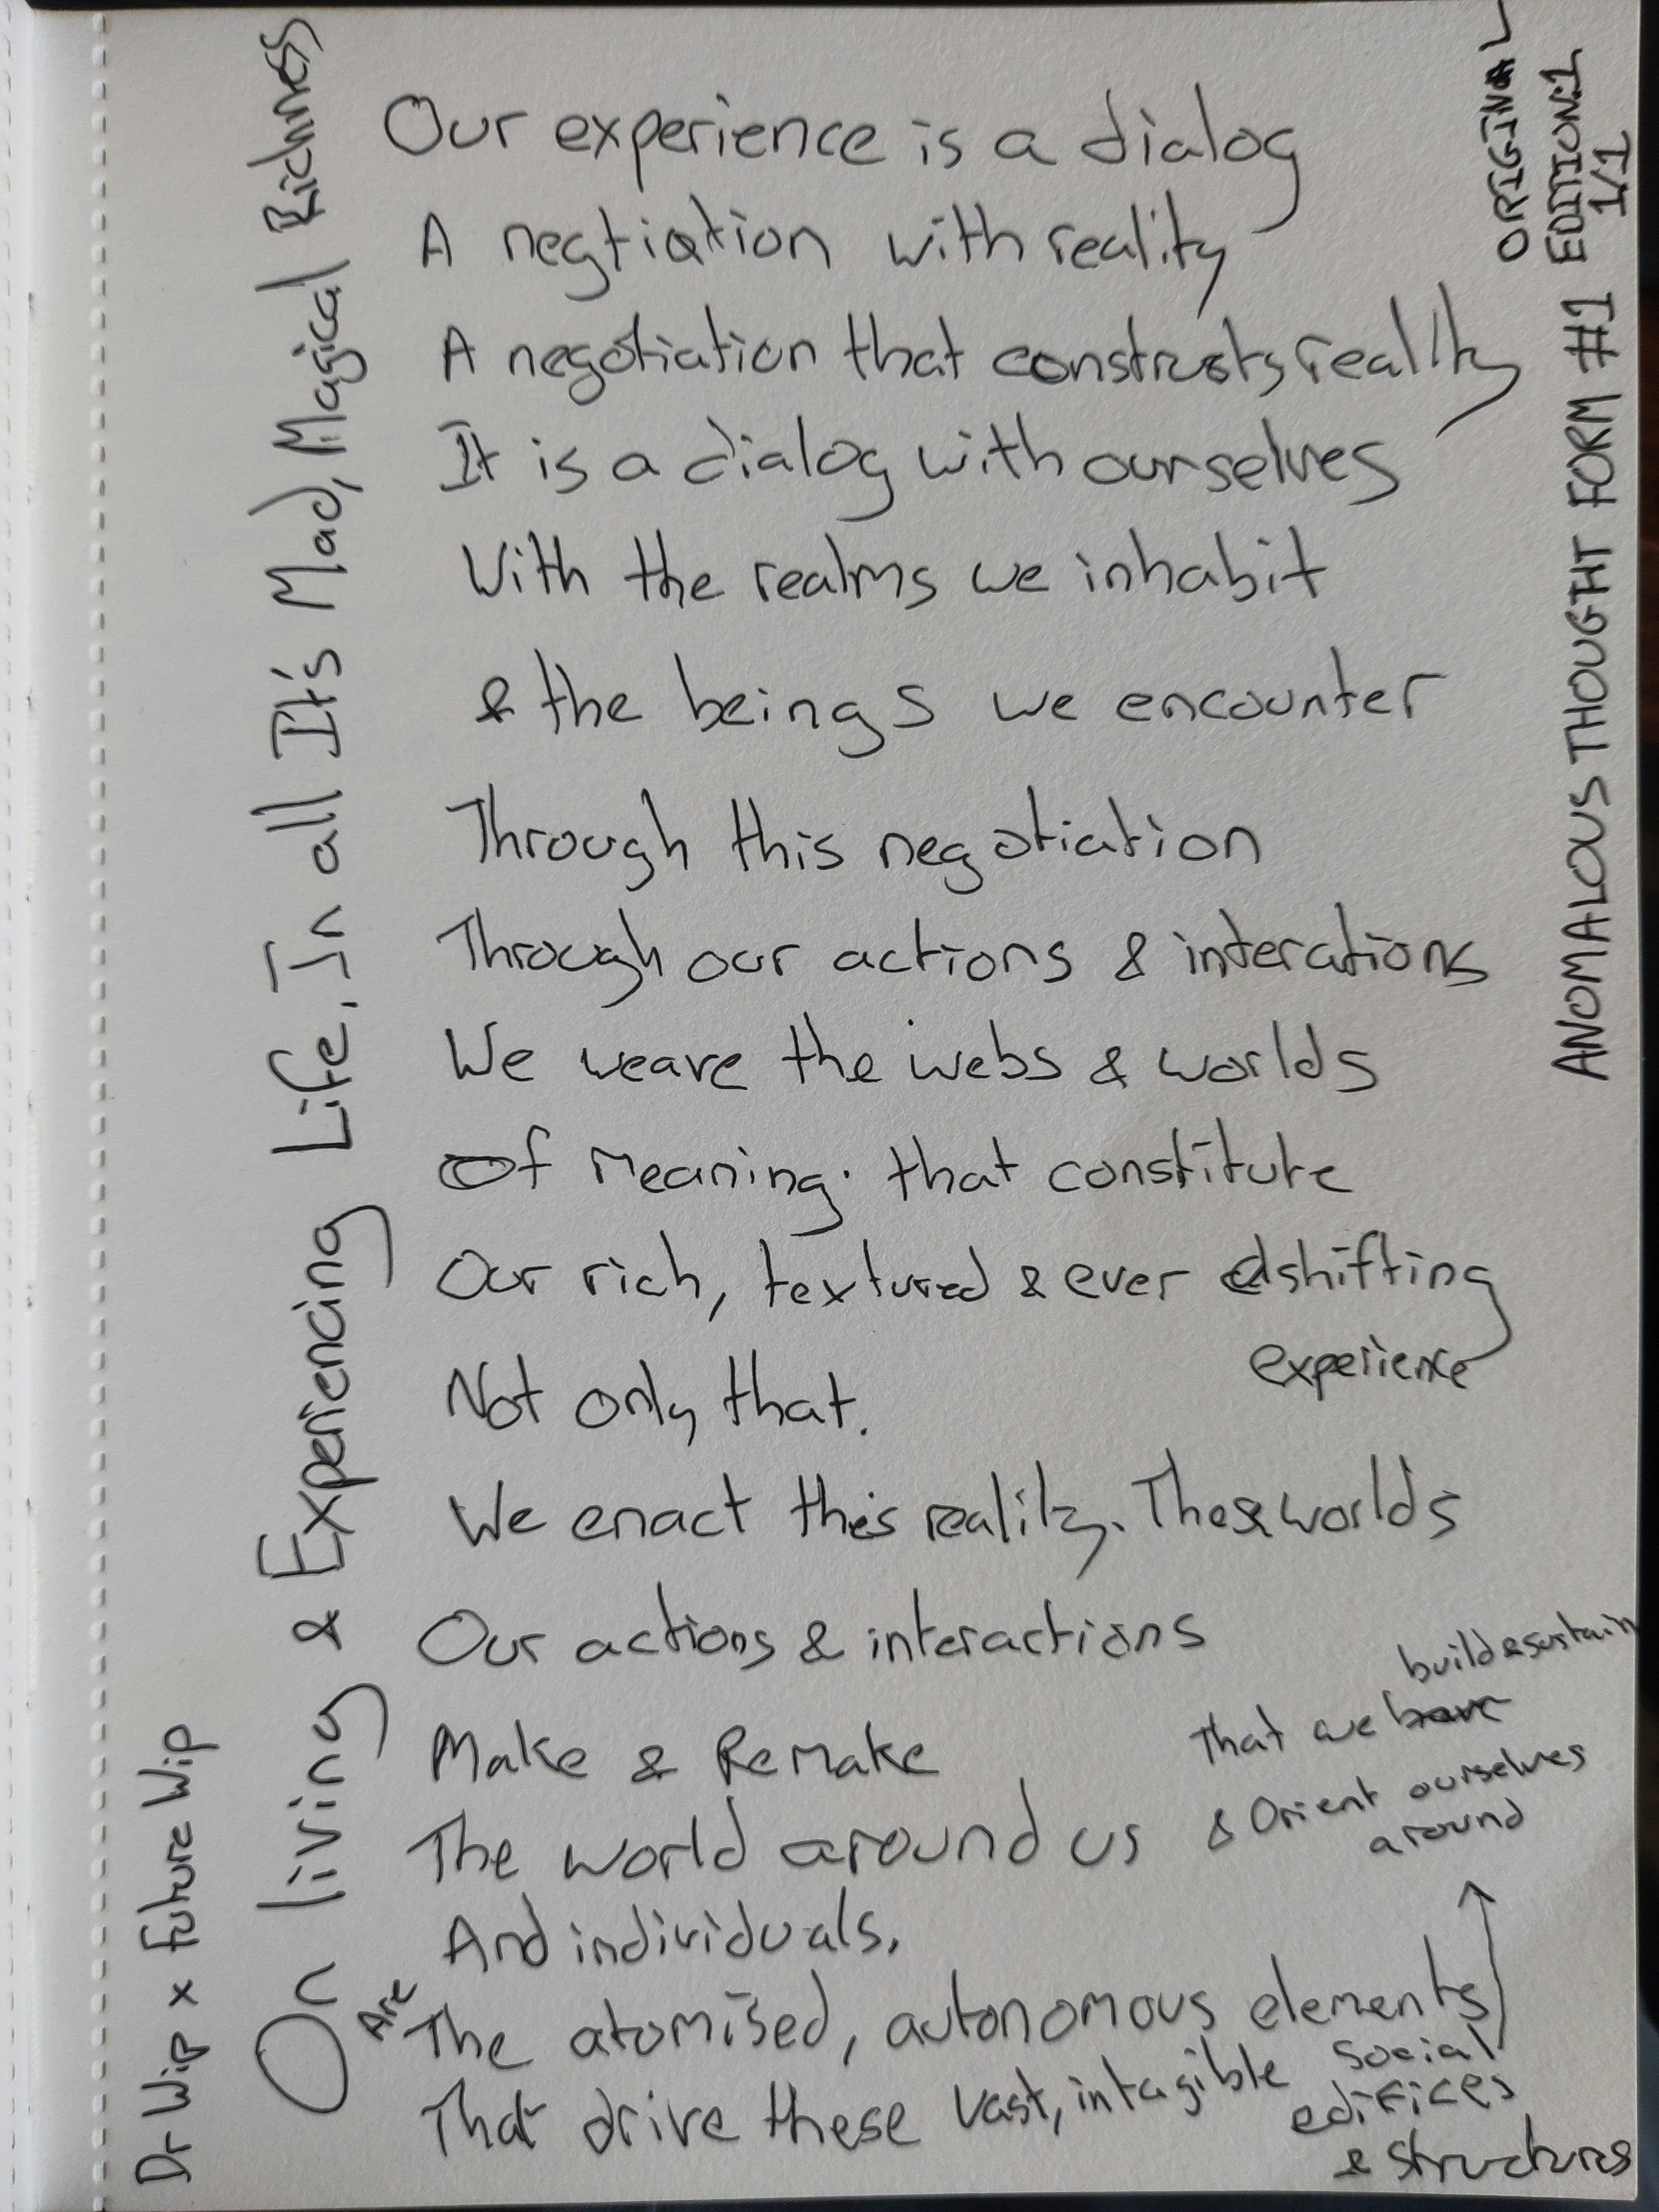 On living & Experiencing Life, In all It's Mad, Magical Richness
Dr Wip x Future Wip
Our experience is a dialog
A negtiation with reality
A negotiation that constructs reality
It is a dialog with ourselves
With the realms we inhabit
& the beings we encounter
Through this negotiation
Through our actions & interations
We weave the webs & worlds
Of Meaning. that constitute
Our rich, textured & ever shifting
experience
Not only that.
We enact this reality. These worlds
Our actions & interactions
Make & Remake
The world around us
And individuals.
Are The atomised, autonomous elements
That drive these vast, intagible social
edifices
& structures
That we build & sustain
& Orient ourselves
around
ANOMALOUS THOUGHT FORM #1
ORIGINAL
EDITION:1
1/1